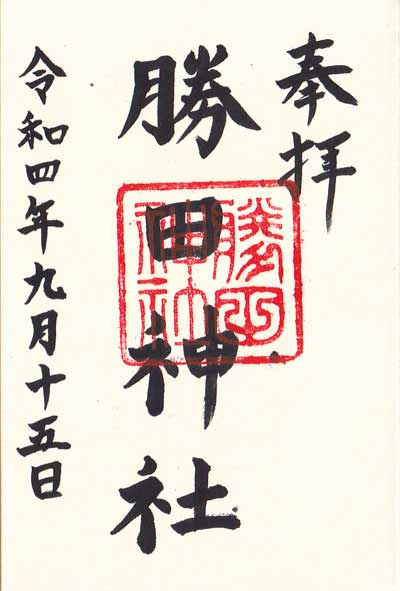 奉拝
勝田神社
勝田神社
令和四年九月十五日